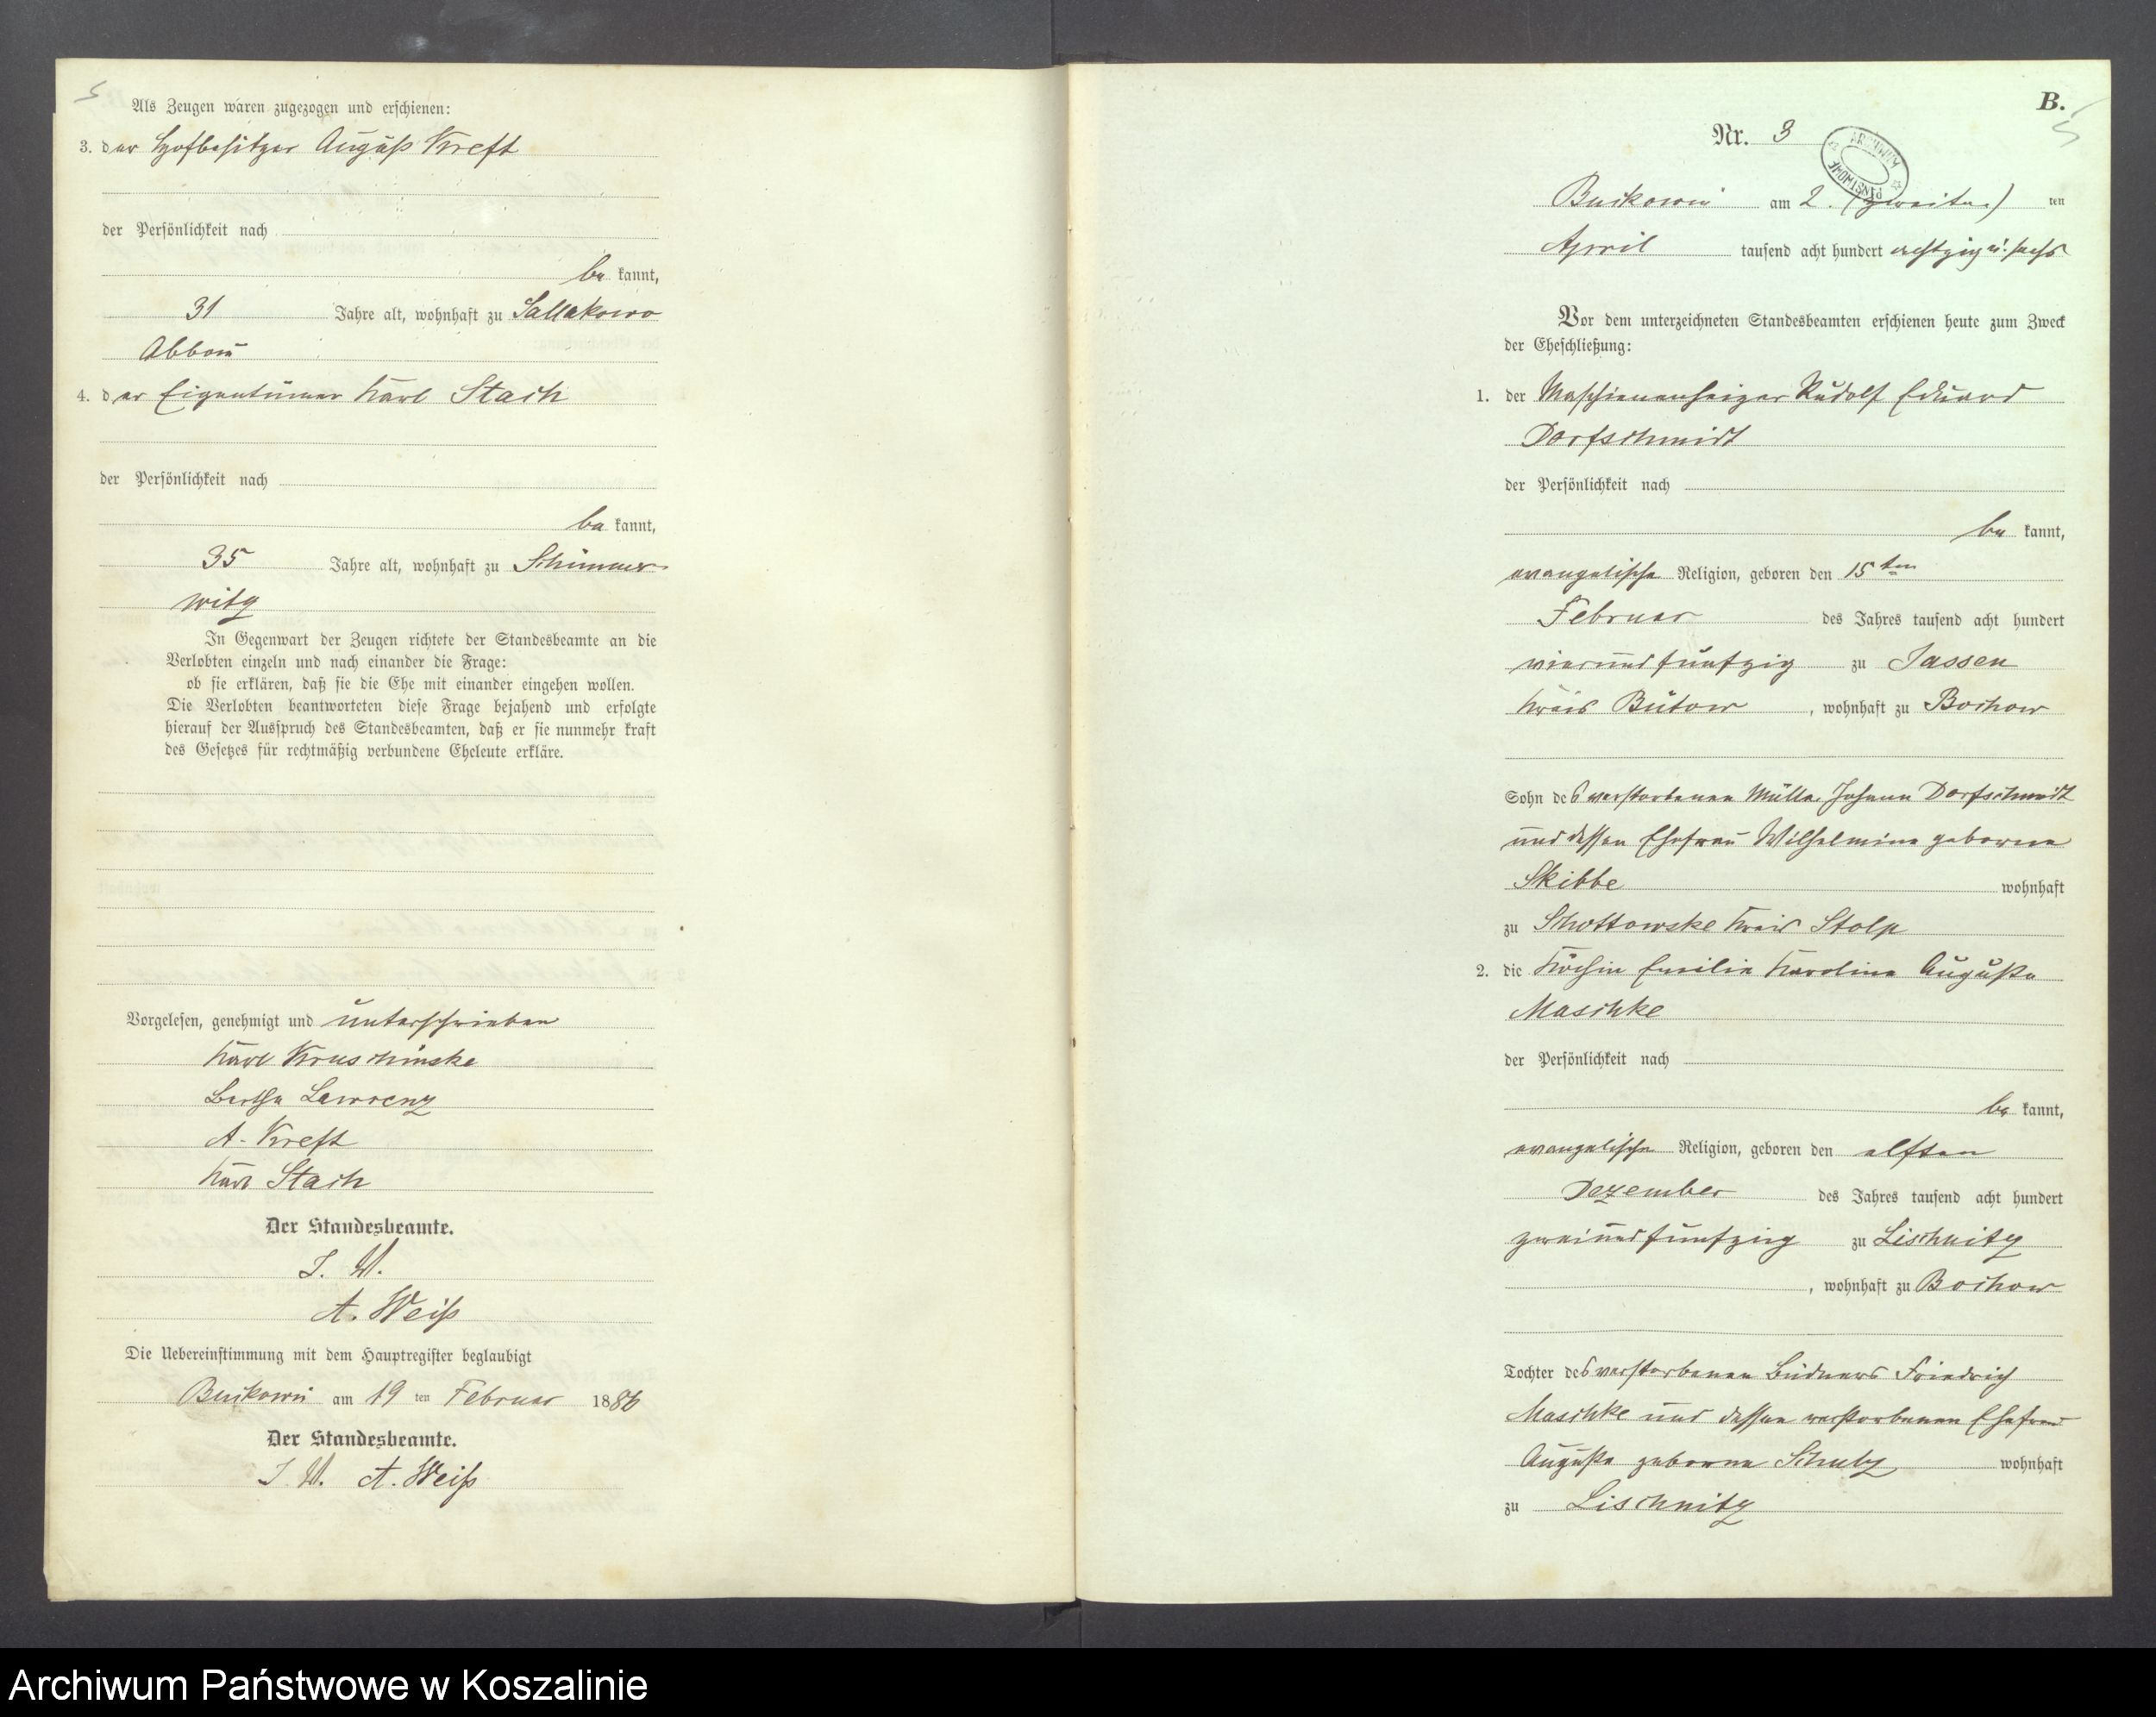 5
Als Zeugen waren zugezogen und erschienen:
3. der Hofbesitzer August Kreft
der Persönlichkeit nach
be kannt,
31 Jahre alt, wohnhaft zu Sallakowo
Abbau
4. der Eigentümer Karl Stach
der Persönlichkeit nach
be kannt,
35 Jahre alt, wohnhaft zu Schimmer-
witz
In Gegenwart der Zeugen richtete der Standesbeamte an die
Verlobten einzeln und nach einander die Frage:
ob sie erklären, daß sie die Ehe mit einander eingehen wollen.
Die Verlobten beantworteten diese Frage bejahend und erfolgte
hierauf der Ausspruch des Standesbeamten, daß er sie nunmehr kraft
des Gesetzes für rechtmäßig verbundene Eheleute erkläre.
Vorgelesen, genehmigt und unterschrieben
Karl Kruschinske
Bertha Lawrenz
A. Kreft
Karl Stach
Der Standesbeamte.
I. V.
A. Weiß
Die Uebereinstimmung mit dem Hauptregister beglaubigt
Buckowin am 19 ten Februar 1886
Der Standesbeamte.
I. V. A. Weiß
B.
5
Nr. 3
ARCHIWUM PAŃSTWOWE
Buckowin am 2. (zweiten) ten
April tausend acht hundert achtzig u. sechs
Vor dem unterzeichneten Standesbeamten erschienen heute zum Zweck
der Eheschließung:
1. der Maschienenheizer Rudolf Eduard
Dorfschmidt
der Persönlichkeit nach
be kannt,
evangelische Religion, geboren den 15ten
Februar des Jahres tausend acht hundert
vierundfünfzig zu Jassen
Kreis Bütow, wohnhaft zu Bochow
Sohn des verstorbenen Müller Johann Dorfschmidt
und dessen Ehefrau Wilhelmine geborene
Skibbe wohnhaft
zu Schottowske Kreis Stolp
2. die Köchin Emilie Karoline Auguste
Maschke
der Persönlichkeit nach
be kannt,
evangelische Religion, geboren den elften
Dezember des Jahres tausend acht hundert
zweiundfünfzig zu Lischnitz
, wohnhaft zu Bochow
Tochter des verstorbenen Büdners Friedrich
Maschke und dessen verstorbenen Ehefrau
Auguste geborne Schulz wohnhaft
zu Lischnitz
Archiwum Państwowe w Koszalinie